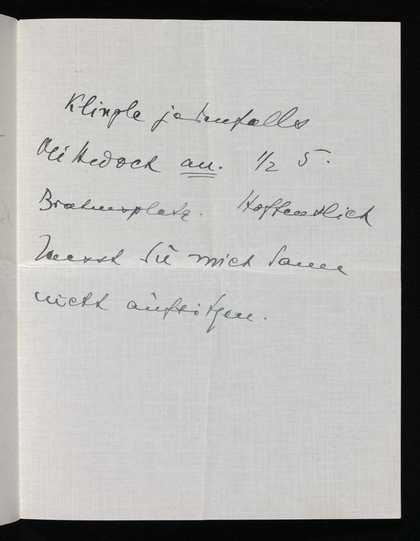 Klingle jedenfalls
Mittwoch an. 1/2 5.
Brahmsplatz. Hoffentlich
Du mich dann
nicht aufsitzen.